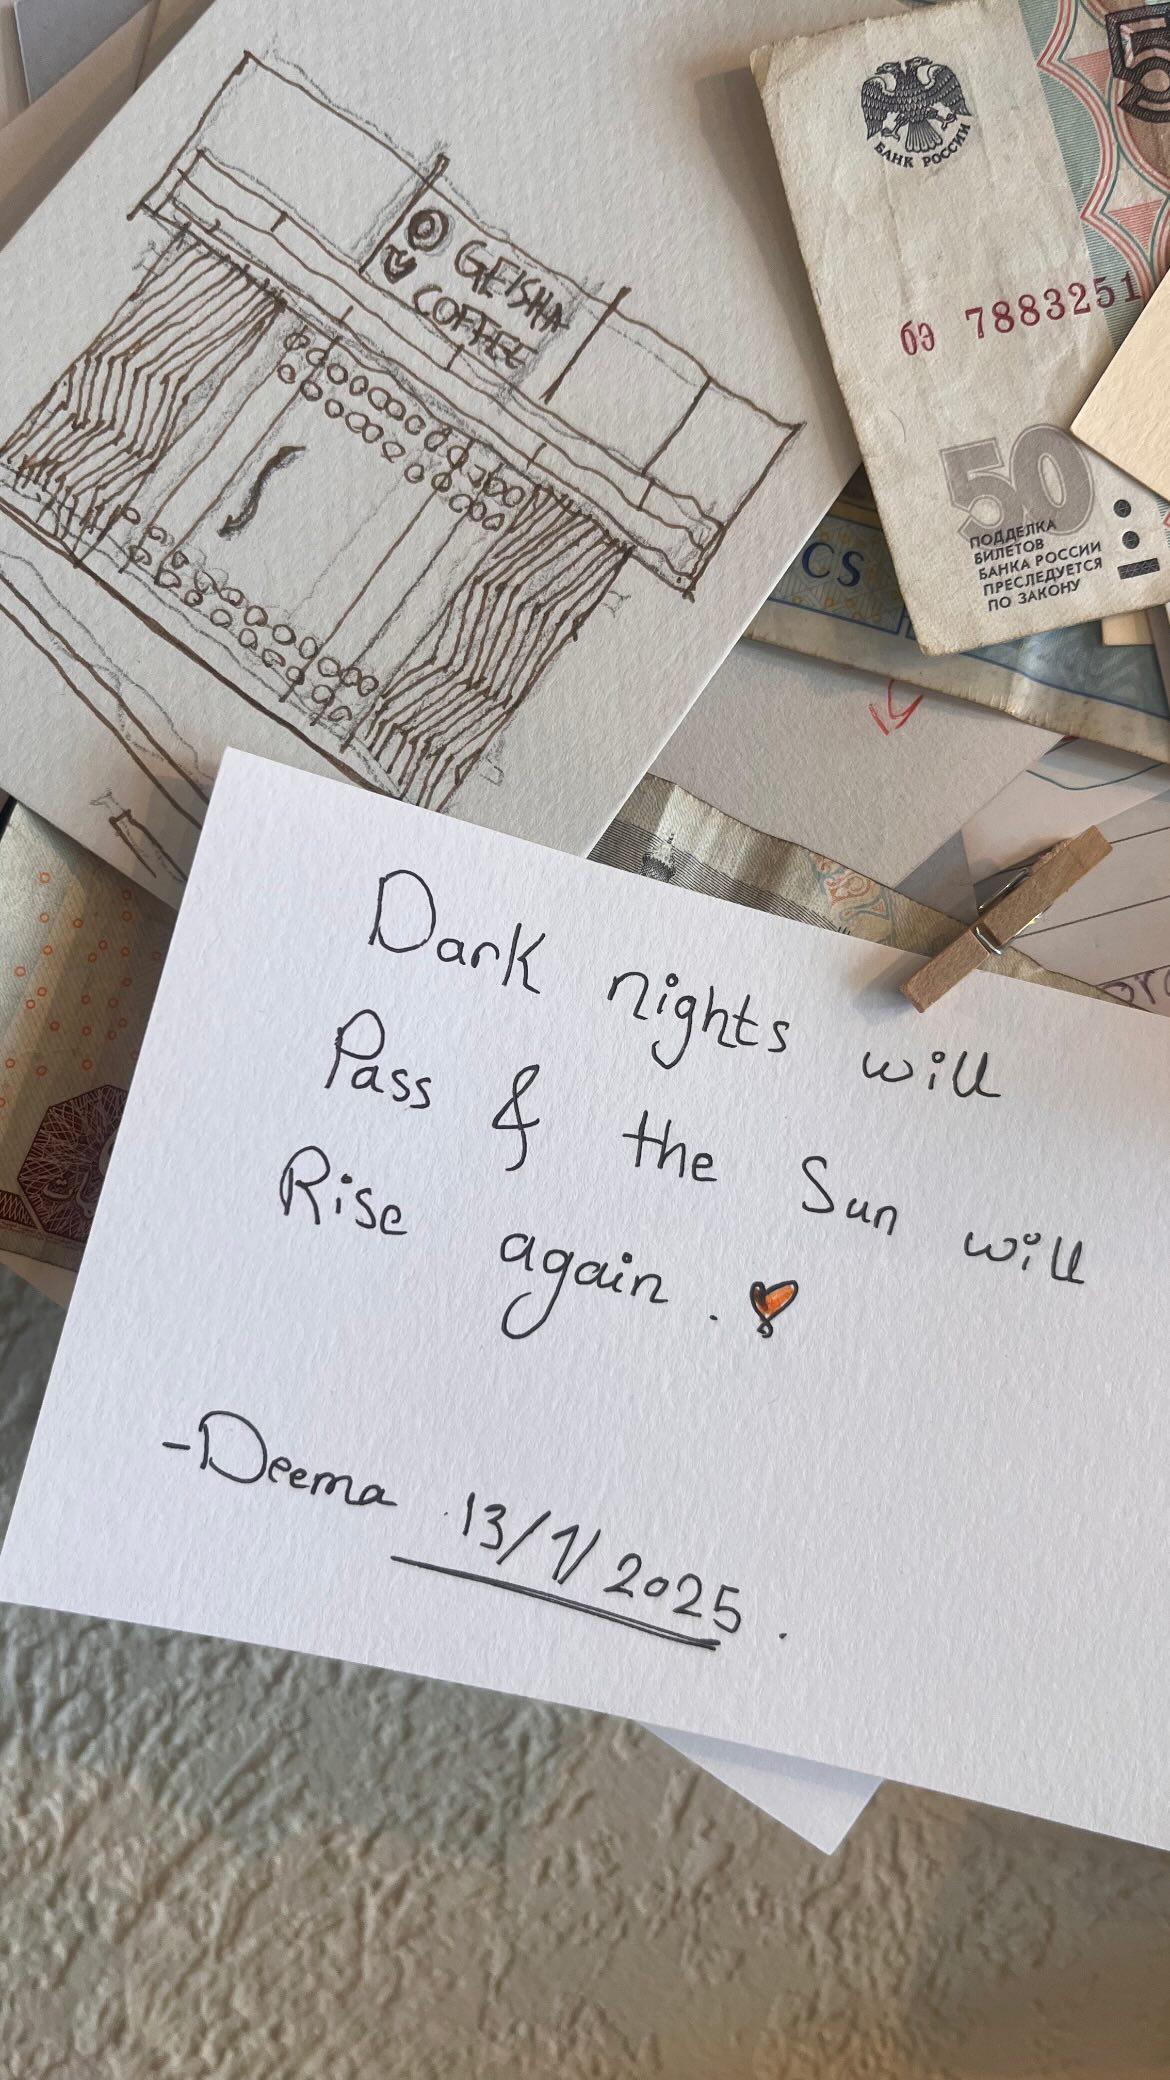 GEISHA
COFFEE
БАНК РОССИИ
5
бэ 7883251
50
ПОДДЕЛКА
БИЛЕТОВ
БАНКА РОССИИ
ПРЕСЛЕДУЕТСЯ
ПО ЗАКОНУ
CS
Dark nights will
Pass & the Sun will
Rise again.
-Deema 13/1/2025.